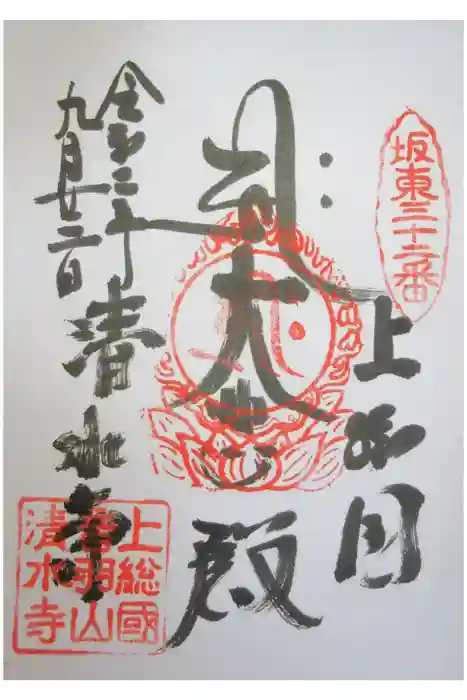 坂東三十二番
上奉拝
大悲殿
令和二年
九月廿二日
清水寺
上総國
音羽山
清水寺